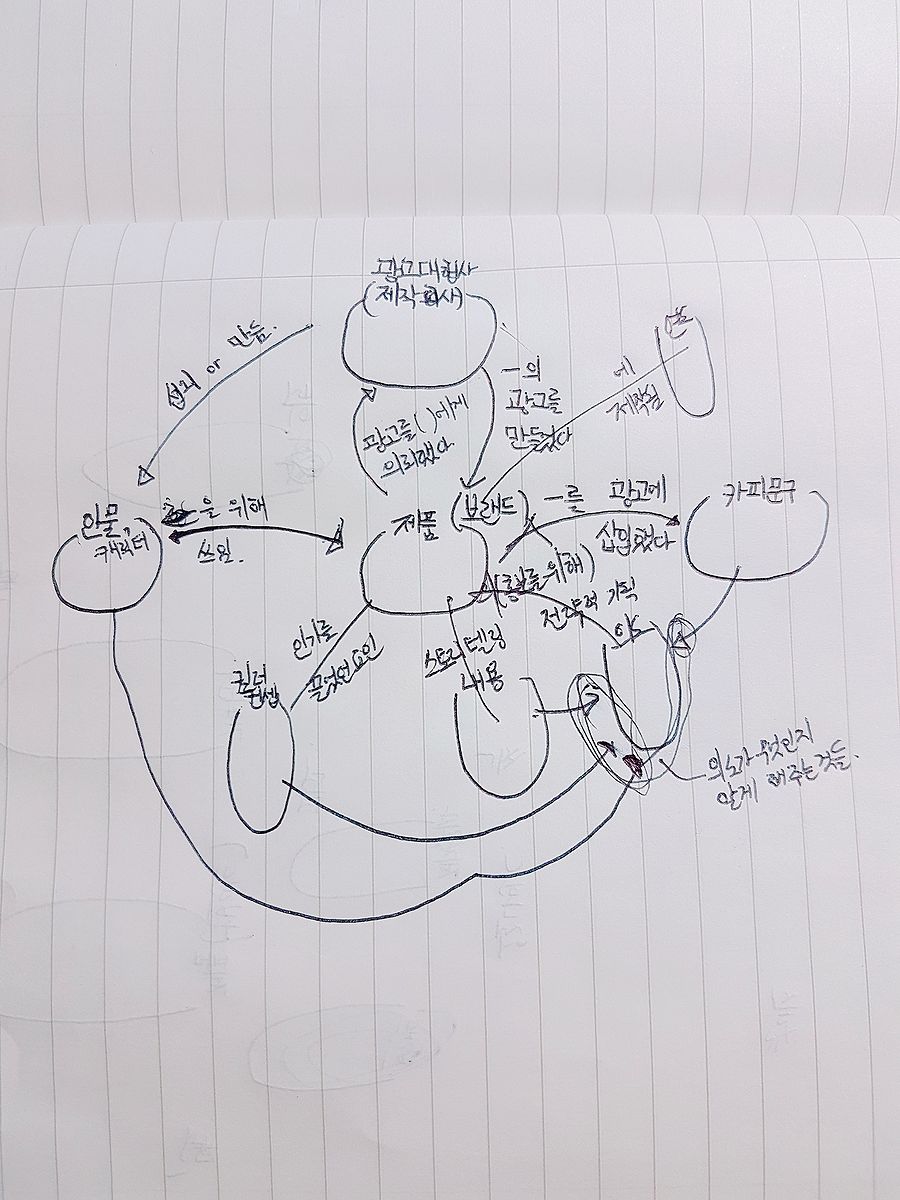 광고대행사
(제작회사)
섭외 or 만듦.
광고를( )에게
의뢰했다
-의
광고를
만들었다
에
제작됨
인물,
캐릭터
을 위해
쓰임.
제품
(브랜드)
-를 광고에
삽입했다
카피문구
(홍보를 위해)
전략적 기획
의도
인기를
끌었던 요인
킬러
컨셉
스토리텔링
내용
의도가 무엇인지
알게 해주는 것들.